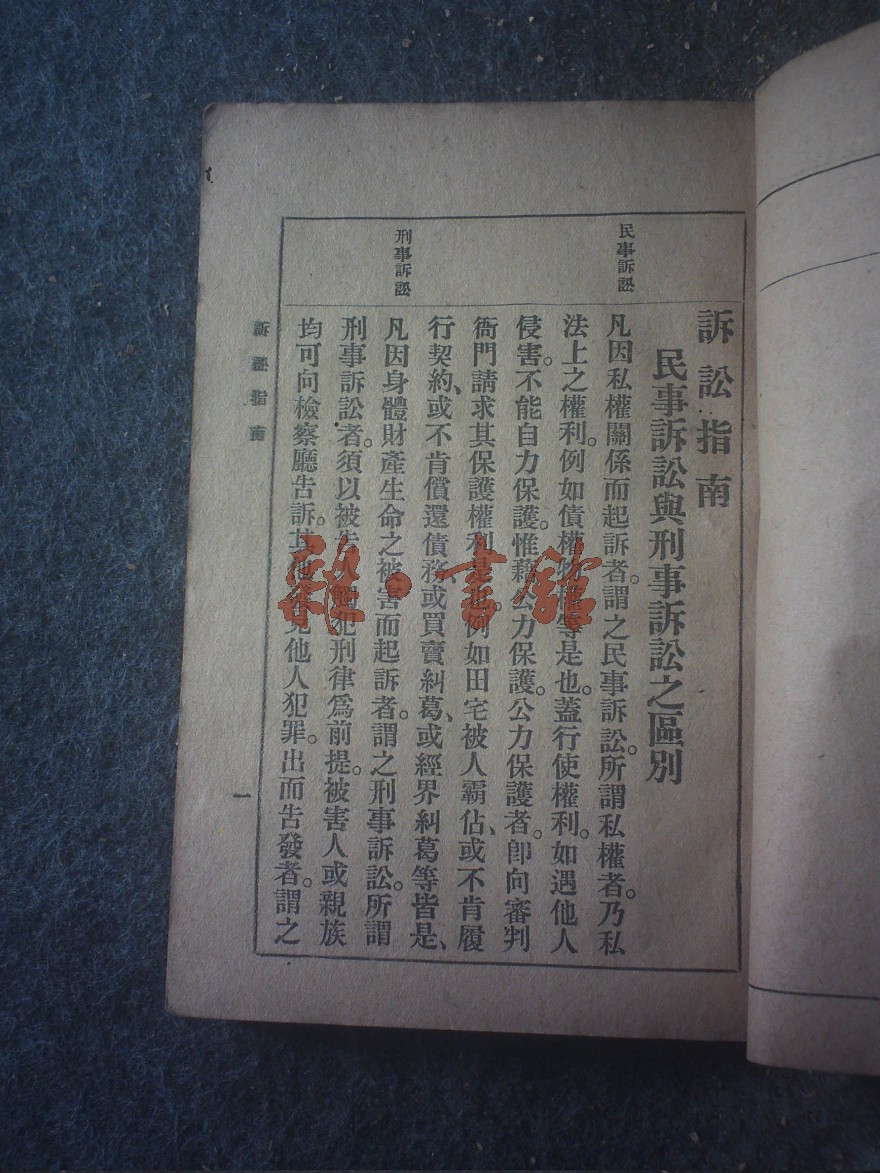 訴訟指南
民事訴訟與刑事訴訟之區別
民事訴訟
凡因私權關係而起訴者。謂之民事訴訟。所謂私權者。乃私
法上之權利。例如債權物權等是也。蓋行使權利。如遇他人
侵害。不能自力保護。惟藉公力保護。公力保護者。卽向審判
衙門請求其保護權利是也。例如田宅被人霸佔、或不肯履
行契約、或不肯償還債務、或買賣糾葛、或經界糾葛等皆是、
刑事訴訟
凡因身體財產生命之被害而起訴者。謂之刑事訴訟。所謂
刑事訴訟者。須以被告人觸犯刑律爲前提。被害人或親族
均可向檢察廳告訴。其他見他人犯罪。出而告發者。謂之
訴訟指南
一
雜·書館